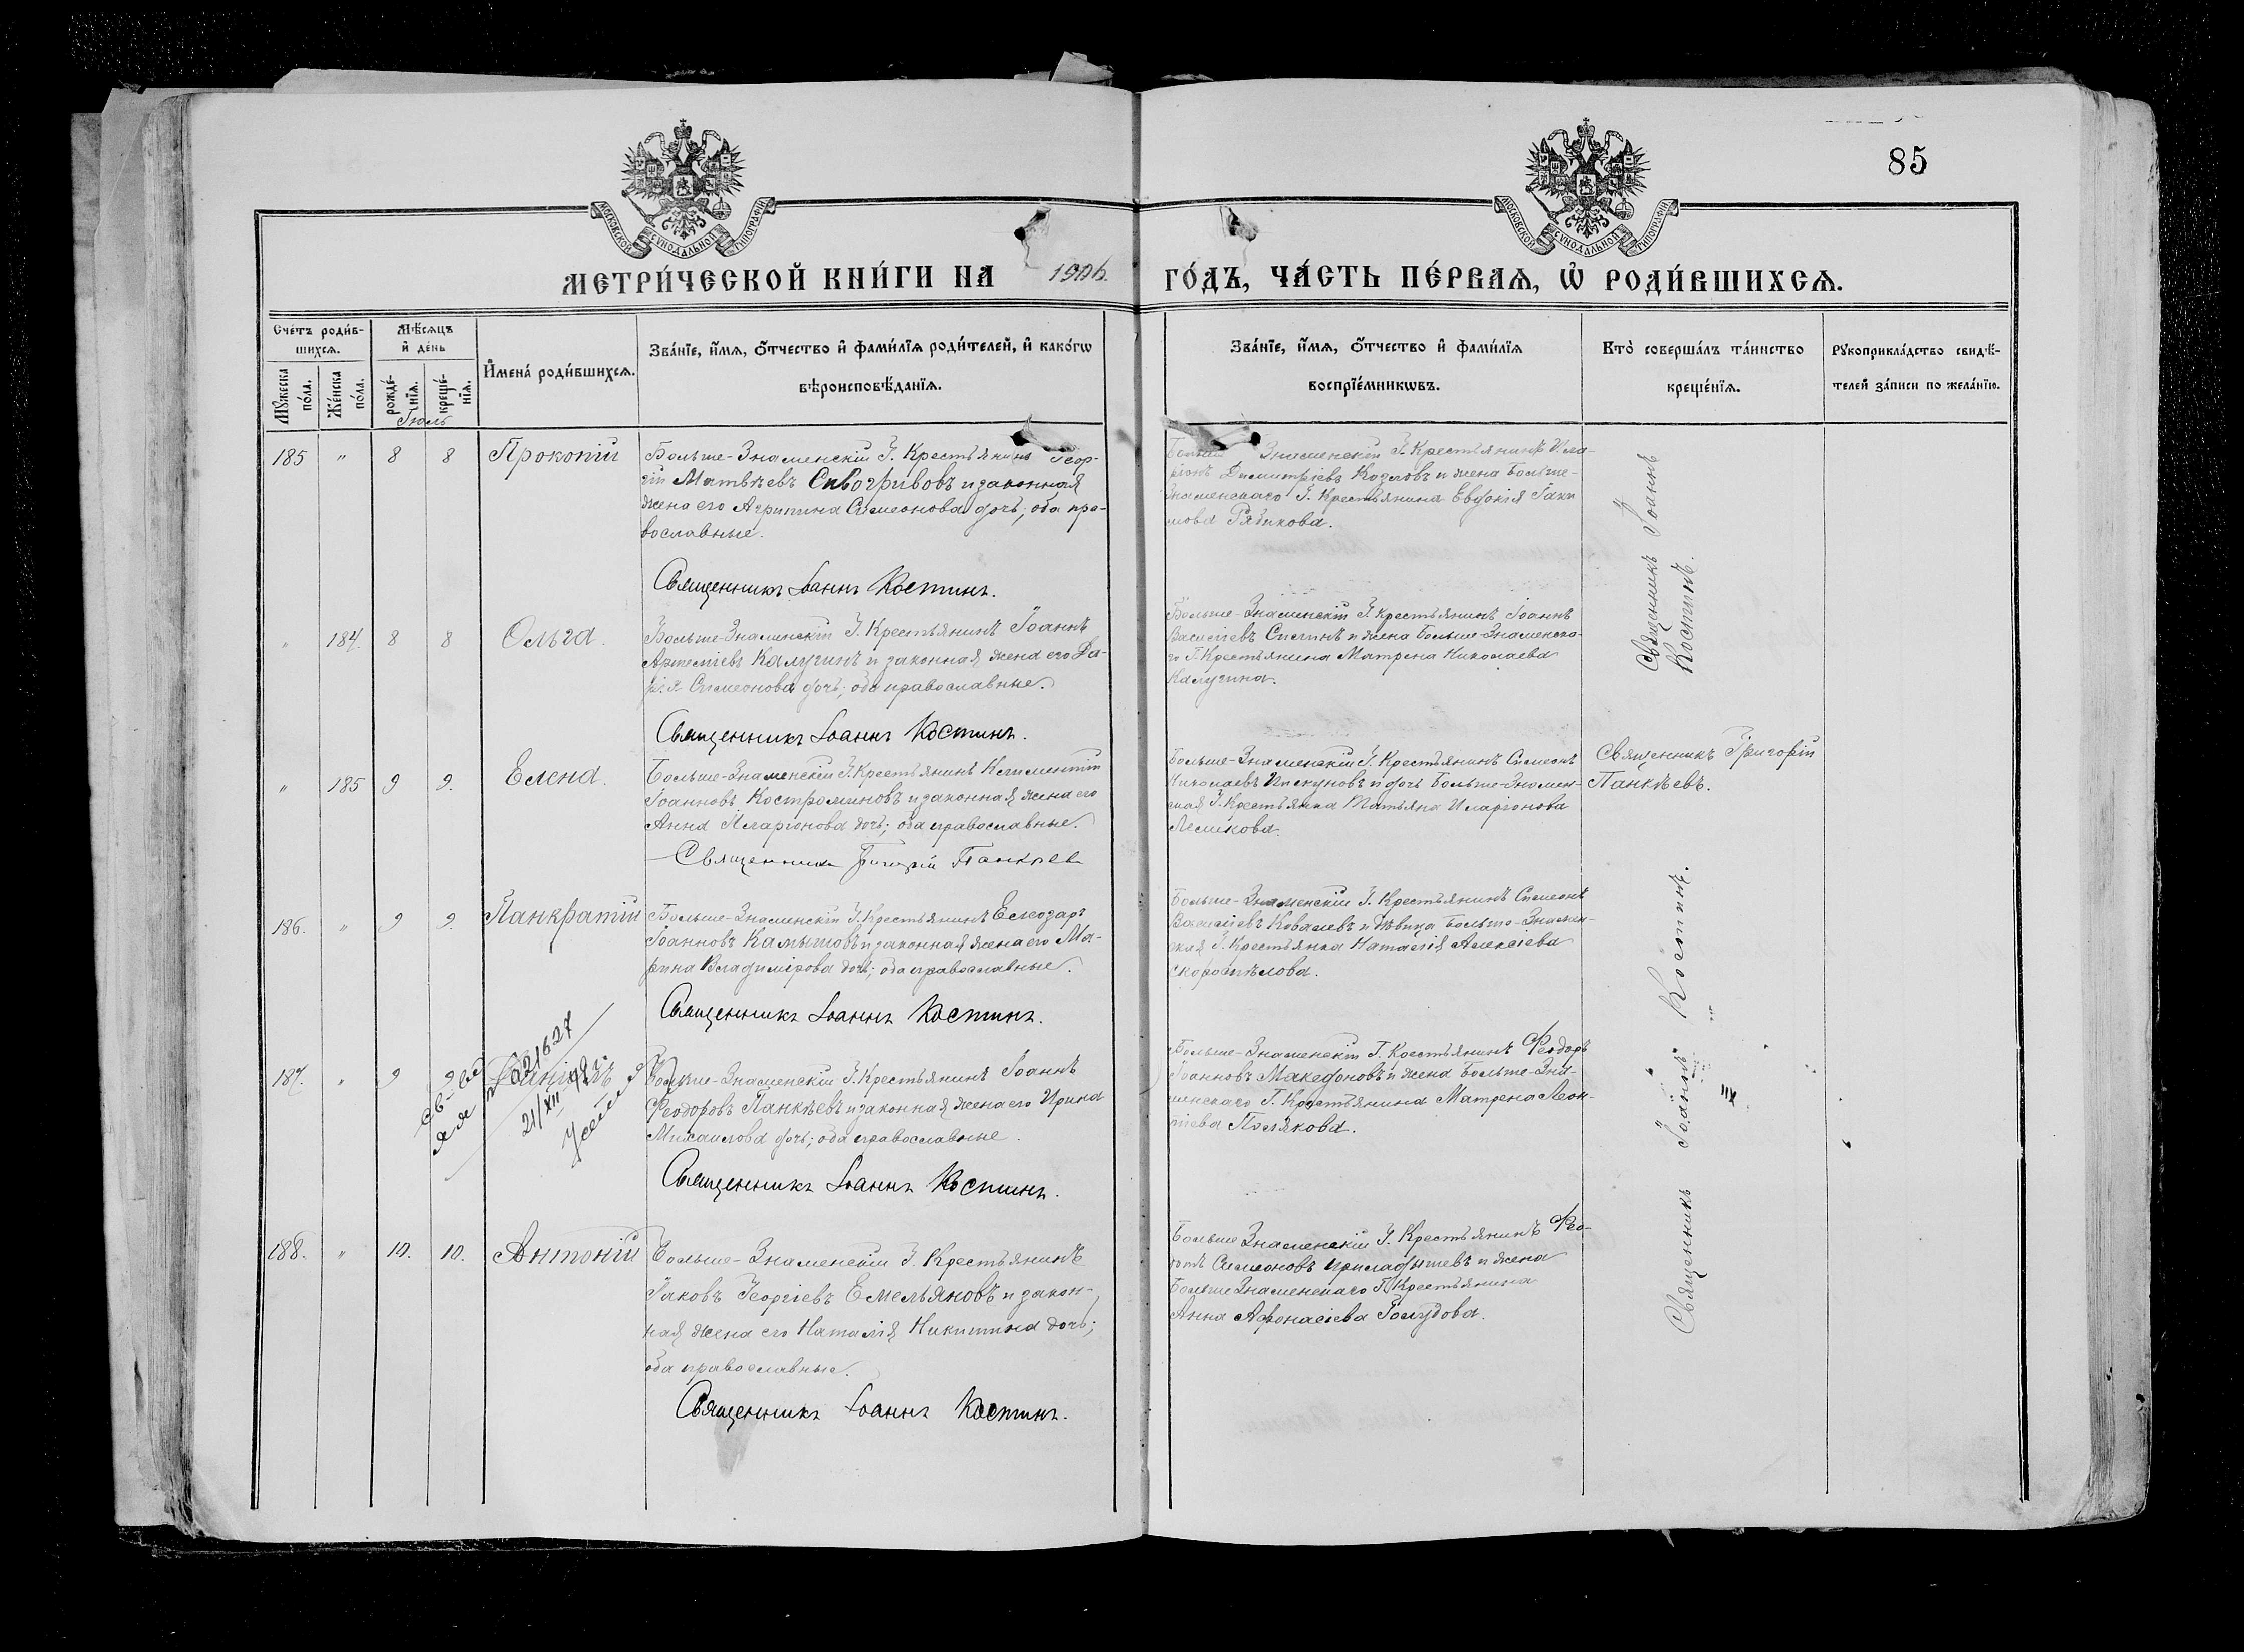 85
МОСКОВСКОЙ СѴНОДАЛЬНОЙ ТИПОГРАФІИ
МОСКОВСКОЙ СѴНОДАЛЬНОЙ ТИПОГРАФІИ
МЕТРИ́ЧЕСКОЙ КНИ́ГИ НА 1906 ГО́ДЪ, ЧА́СТЬ ПЕ́РВАѦ, Ѡ҆ РОДИ́ВШИХСѦ.
Сче́тъ роди́в-
шихсѧ.
Мѣ́сѧцъ
и҆ де́нь
Мꙋ́жеска
по́ла.
Же́нска
по́ла.
рожде́-
нїѧ.
креще́-
нїѧ.
И҆мена́ роди́вшихсѧ.
Зва́нїе, и҆́мѧ, ѻ҆́тчество и҆ фами́лїѧ роди́телей, и҆ како́гѡ
вѣроисповѣ́данїѧ.
Зва́нїе, и҆́мѧ, ѻ҆́тчество и҆ фами́лїѧ
воспрїе́мникѡвъ.
Кто̀ соверша́лъ та́инство
креще́нїѧ.
Рꙋкоприкла́дство свидѣ́-
телей за́писи по жела́нїю.
Іюль
185 " 8 8 Прокопій
Больше-Знаменскій Г. Крестьянинъ Геор-
гій Матвѣевъ Сивогривовъ и законная
жена его Агрипина Симеонова дочь; оба пра-
вославные.
Священникъ Іоаннъ Костинъ.
Знаменскій Г. Крестьянинъ Ила-
ріонъ Димитріевъ Козловъ и жена Больше-
Знаменскаго Г. Крестьянина Евдокія Іаки
мова Рябикова.
Священникъ Іоаннъ
Костинъ.
" 184. 8 8 Ольга.
Больше-Знаменскій Г. Крестьянинъ Іоаннъ
Артеміевъ Калугинъ и законная жена его Да-
рія Симеонова дочь; оба православные.
Священникъ Іоаннъ Костинъ.
Больше-Знаменскій Г. Крестьянинъ Іоаннъ
Василіевъ и жена Больше-Знаменска-
го Г. Крестьянина Матрена Николаева
Калугина.
" 185 9 9. Елена.
Больше-Знаменскій Г. Крестьянинъ Климентій
Іоанновъ Костроминовъ и законная жена его
Анна Иларіонова дочь; оба православные.
Священникъ Григорій Панкѣев
Больше-Знаменскій Г. Крестьянинъ Симеонъ
Николаевъ Пискуновъ и дочь Больше-Знамен-
ская Г. Крестьянка Татьяна Иларіонова
Лемикова.
Священникъ Григорій
Панкѣевъ.
186. " 9 9. Панкратій
Больше-Знаменскій Г. Крестьянинъ Елеозаръ
Іоанновъ Камышовъ и законная жена его Ма-
рина Владимірова дочь; оба православные.
Священникъ Іоаннъ Костинъ.
Больше-Знаменскій Г. Крестьянинъ Симеонъ
Василіевъ Ковалевъ и дѣвица Больше-Знамен-
ская Г. Крестьянка Наталія Алексіева
Скороспѣлова.
187. " 9 9 Даніилъ
21/XII
Больше-Знаменскій Г. Крестьянинъ Іоаннъ
Феодоровъ Панкѣевъ и законная жена его Ирина
Михаилова дочь; оба православные.
Священникъ Іоаннъ Костинъ.
Больше-Знаменскій Г. Крестьянинъ Феодоръ
Іоанновъ Македоновъ и жена Больше-Зна-
менскаго Г. Крестьянина Матрена Леон-
тіева Полякова.
Священникъ Іоаннъ Костинъ.
188. " 10. 10. Антоній
Больше-Знаменскій Г. Крестьянинъ
Іаковъ Георгіевъ Емельяновъ и закон-
ная жена его Наталія Никитина дочь;
оба православные.
Священникъ Іоаннъ Костинъ.
Больше Знаменскій Г. Крестьянинъ Фео-
дотъ Симеоновъ и жена
Больше Знаменскаго Г. Крестьянина
Анна Афонасіева Голубова.